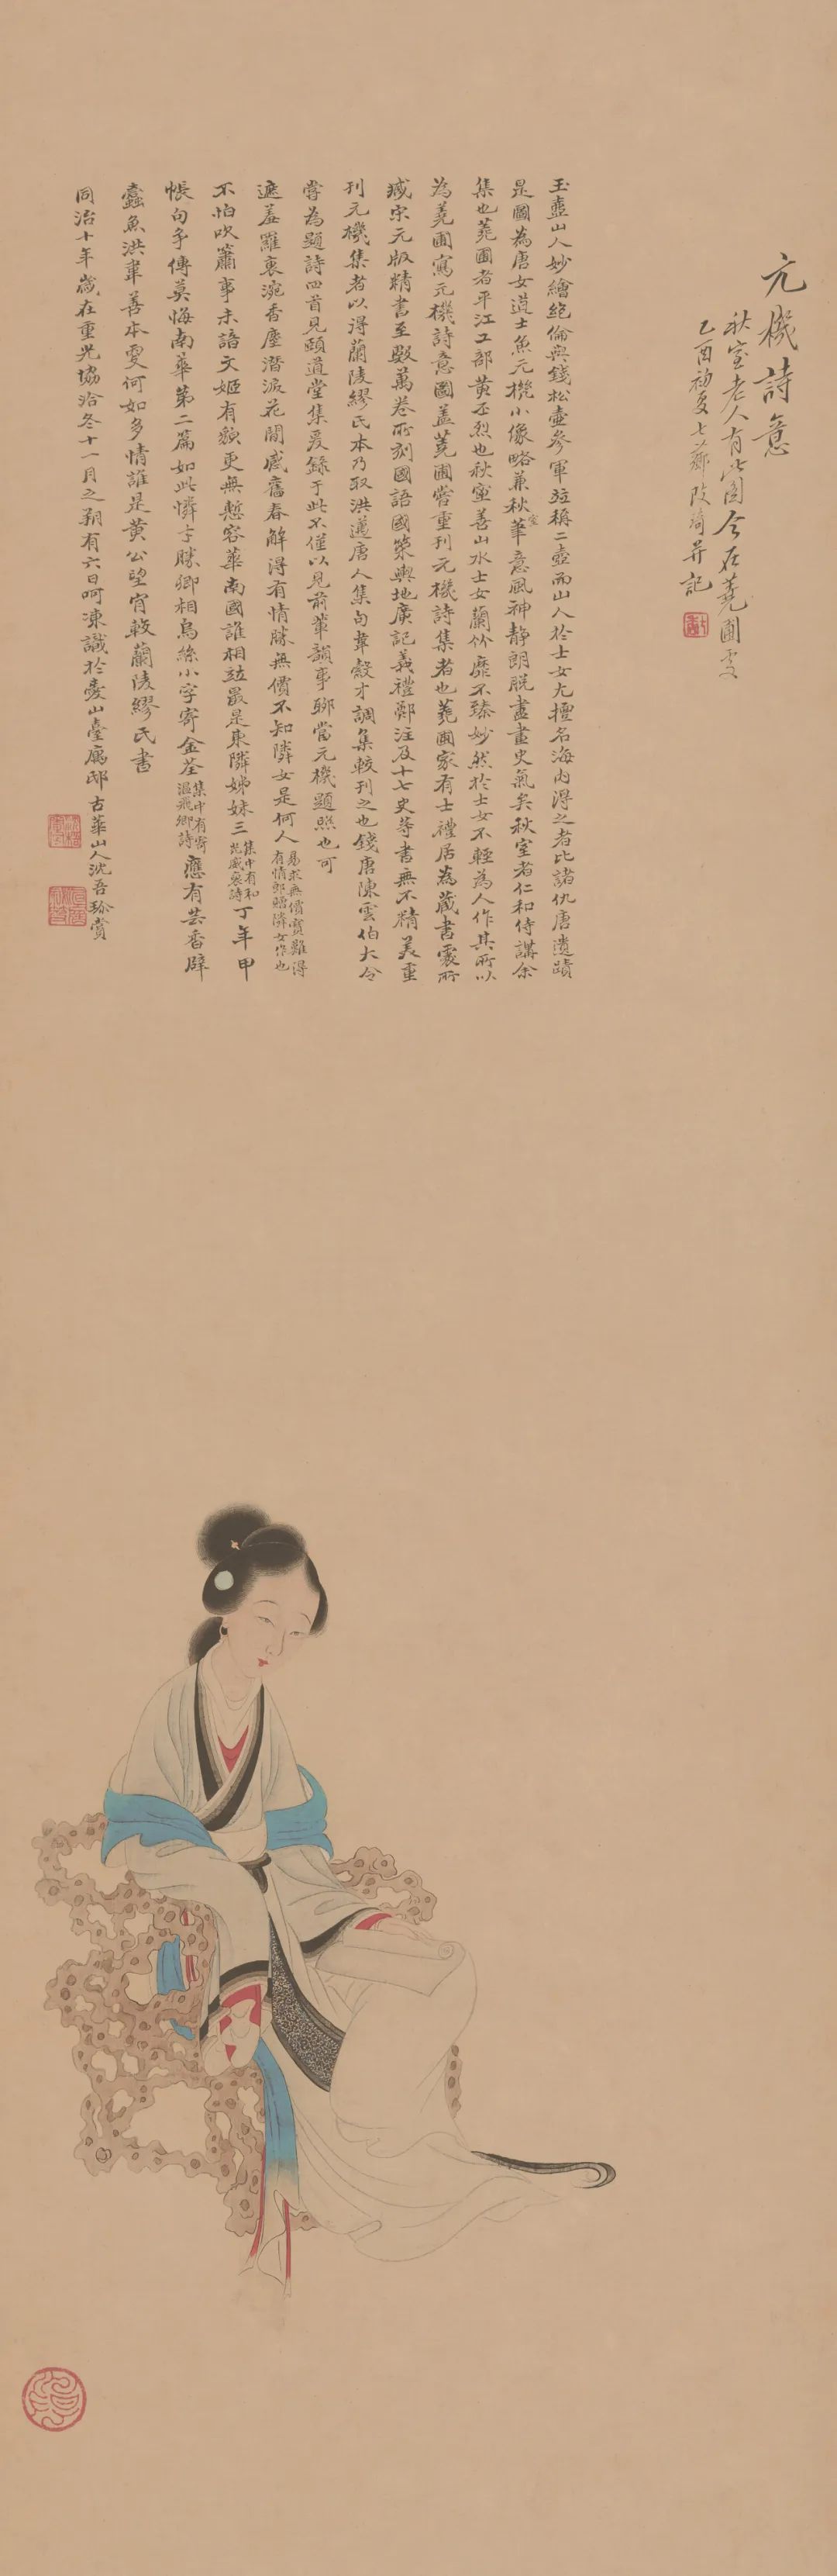 元機詩意
秋室老人有此圖今在蕘圃處
乙酉初夏七薌改琦并記
玉壺山人妙繪絕倫與錢松壺參軍竝稱二壺而山人於士女尤擅名海內得之者比諸仇唐遺蹟
是圖為唐女道士魚元機小像略兼秋室筆意風神靜朗脫盡畫史氣矣秋室者仁和侍講余
集也蕘圃者平江工部黃丕烈也秋室善山水士女蘭竹靡不臻妙然於士女不輕為人作其所以
為蕘圃寫元機詩意圖蓋蕘圃嘗重刊元機詩集者也蕘圃家有士禮居為藏書處所
臧宋元版精書至數萬卷所刻國語國策輿地廣記義禮鄭注及十七史等書無不精美重
刊元機集者以得蘭陵繆氏本乃取洪邁唐人集句韋縠才調集較刊之也錢唐陳雲伯大令
嘗為題詩四首見頤道堂集爰錄于此不僅以見前輩韻事聊當元機題照也可
遮羞羅裏涴香塵潛淚花間感舊春解得有情勝無價不知隣女是何人易求無價寶難得有情郎贈隣女作也
不怕吹簫事未諳文姬有貌更無慙容華南國誰相竝最是東隣姊妹三集中有和光威裒詩丁年甲
帳句爭傳莫悔南華第二篇如此憐才勝卿相烏絲小字寄金荃集中有寄溫飛卿詩應有芸香辟
蠹魚洪韋善本更何如多情誰是黃公望宵較蘭陵繆氏書
同治十年歲在重光協洽冬十一月之朔有六日呵凍識於夌山臺寓邸古華山人沈吾珎賞